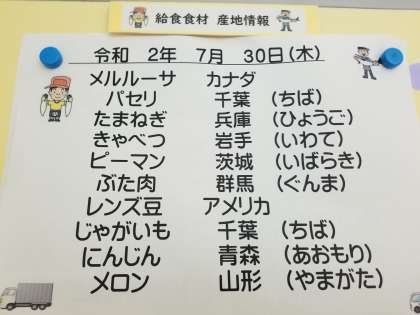 給食食材 産地情報
令和 2年 7月 30日(木)
メルルーサ カナダ
パセリ 千葉 (ちば)
たまねぎ 兵庫 (ひょうご)
きゃべつ 岩手 (いわて)
ピーマン 茨城 (いばらき)
ぶた肉 群馬 (ぐんま)
レンズ豆 アメリカ
じゃがいも 千葉 (ちば)
にんじん 青森 (あおもり)
メロン 山形 (やまがた)